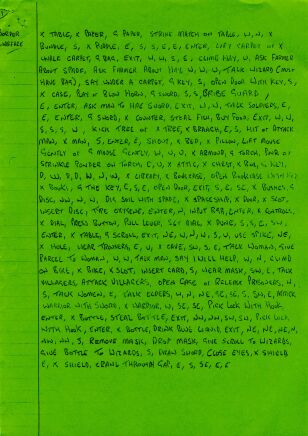 BORDER WARFARE
X TABLE, X PAPER, G PAPER, STRIKE MATCH ON TABLE, W, W, X
BUNDLE, S, X PUDDLE, E, S, S, E, E, ENTER, LIFT CARPET OR X
WHILE CARPET, G BAG, EXIT, W, W, S, E, CLIMB HAY, W, ASK FARMER
ABOUT SPADE, ASK FARMER ABOUT HAY, W, W, W, TALK WIZARD (MUST
HAVE BAG), SAY UNDER A CARPET, G KEY, S, OPEN DOOR WITH KEY, S,
X CASE, PLAY OR BLOW HORN, G SWORD, S, S, BRIBE GUARD,
E, ENTER, ASK MAN TO HIRE SWORD, EXIT, W, W, TALK SOLDIERS, E,
E, ENTER, G SWORD, X COUNTER, STEAL FISH, BUY FOOD, EXIT, W, W,
S, S, W, KICK TREE OR X TREE, X BRANCH, E, S, HIT OR ATTACK
MAN, X MAN, S, ENTER, E, SHOUT, X BED, X PILLOW, LIFT MOUSE
GENTLY OR G MOUSE GENTLY, W, W, W, X ARMOUR, G TORCH, PUT OR
SPRINKLE POWDER ON TORCH, E, U, X ATTIC, X CHEST, X BOX, G KEY,
D, W, D, W, W, X LIBRARY, X BOOKCASE, OPEN BOOKCASE WITH KEY
X BOOK, G THE KEY, E, S, E, OPEN DOOR, EXIT, S, E, SE, X BUSHES, G
DISC, NW, W, W, DIG SOIL WITH SPADE, X SPACESHIP, X DOOR, X SLOT,
INSERT DISC, TYPE OXYGENE, ENTER, N, INPUT, ENTER, X CONTROLS,
X DIAL, PRESS BUTTON, PULL LEVER, SET DIAL, X, S, S, SW,
ENTER, X TABLE, G SCROLL, EXIT, NE, N, N, S, W, USE SPIKE, NE,
X HOLE, WEAR TROUSERS, E, U, X CAVE, SW, S, E, TALK WOMAN, GIVE
PARCEL TO WOMAN, W, W, TALK MAN, SAY I WILL HELP, W, N, CLIMB
ON BIKE, X BIKE, X SLOT, INSERT CARD, S, WEAR MASK, SW, E, TALK
VILLAGERS, ATTACK VILLAGERS, OPEN CAGE OR RELEASE PRISONERS, N,
S, TALK WOMEN, E, TALK ELDERS, W, N, NE, SE, SE, S, SW, E, ATTACK
WARRIOR WITH SWORD, X WARRIOR, W, SE, SE, PICK LOCK WITH HOOK,
ENTER, X BOTTLE, STEAL BOTTLE, EXIT, NW, NW, SW, SW, PICK LOCK
WITH HOOK, ENTER, X BOTTLE, DRINK BLUE LIQUID, EXIT, NE, NE, NE, N
NW, NW, S, REMOVE MASK, DROP MASK, GIVE SCROLL TO WIZARDS,
GIVE BOTTLE TO WIZARDS, S, DRAW SWORD, CLOSE EYES, X SHIELD
E, X SHIELD, CRAWL THROUGH GAP, E, S, SE, E, E